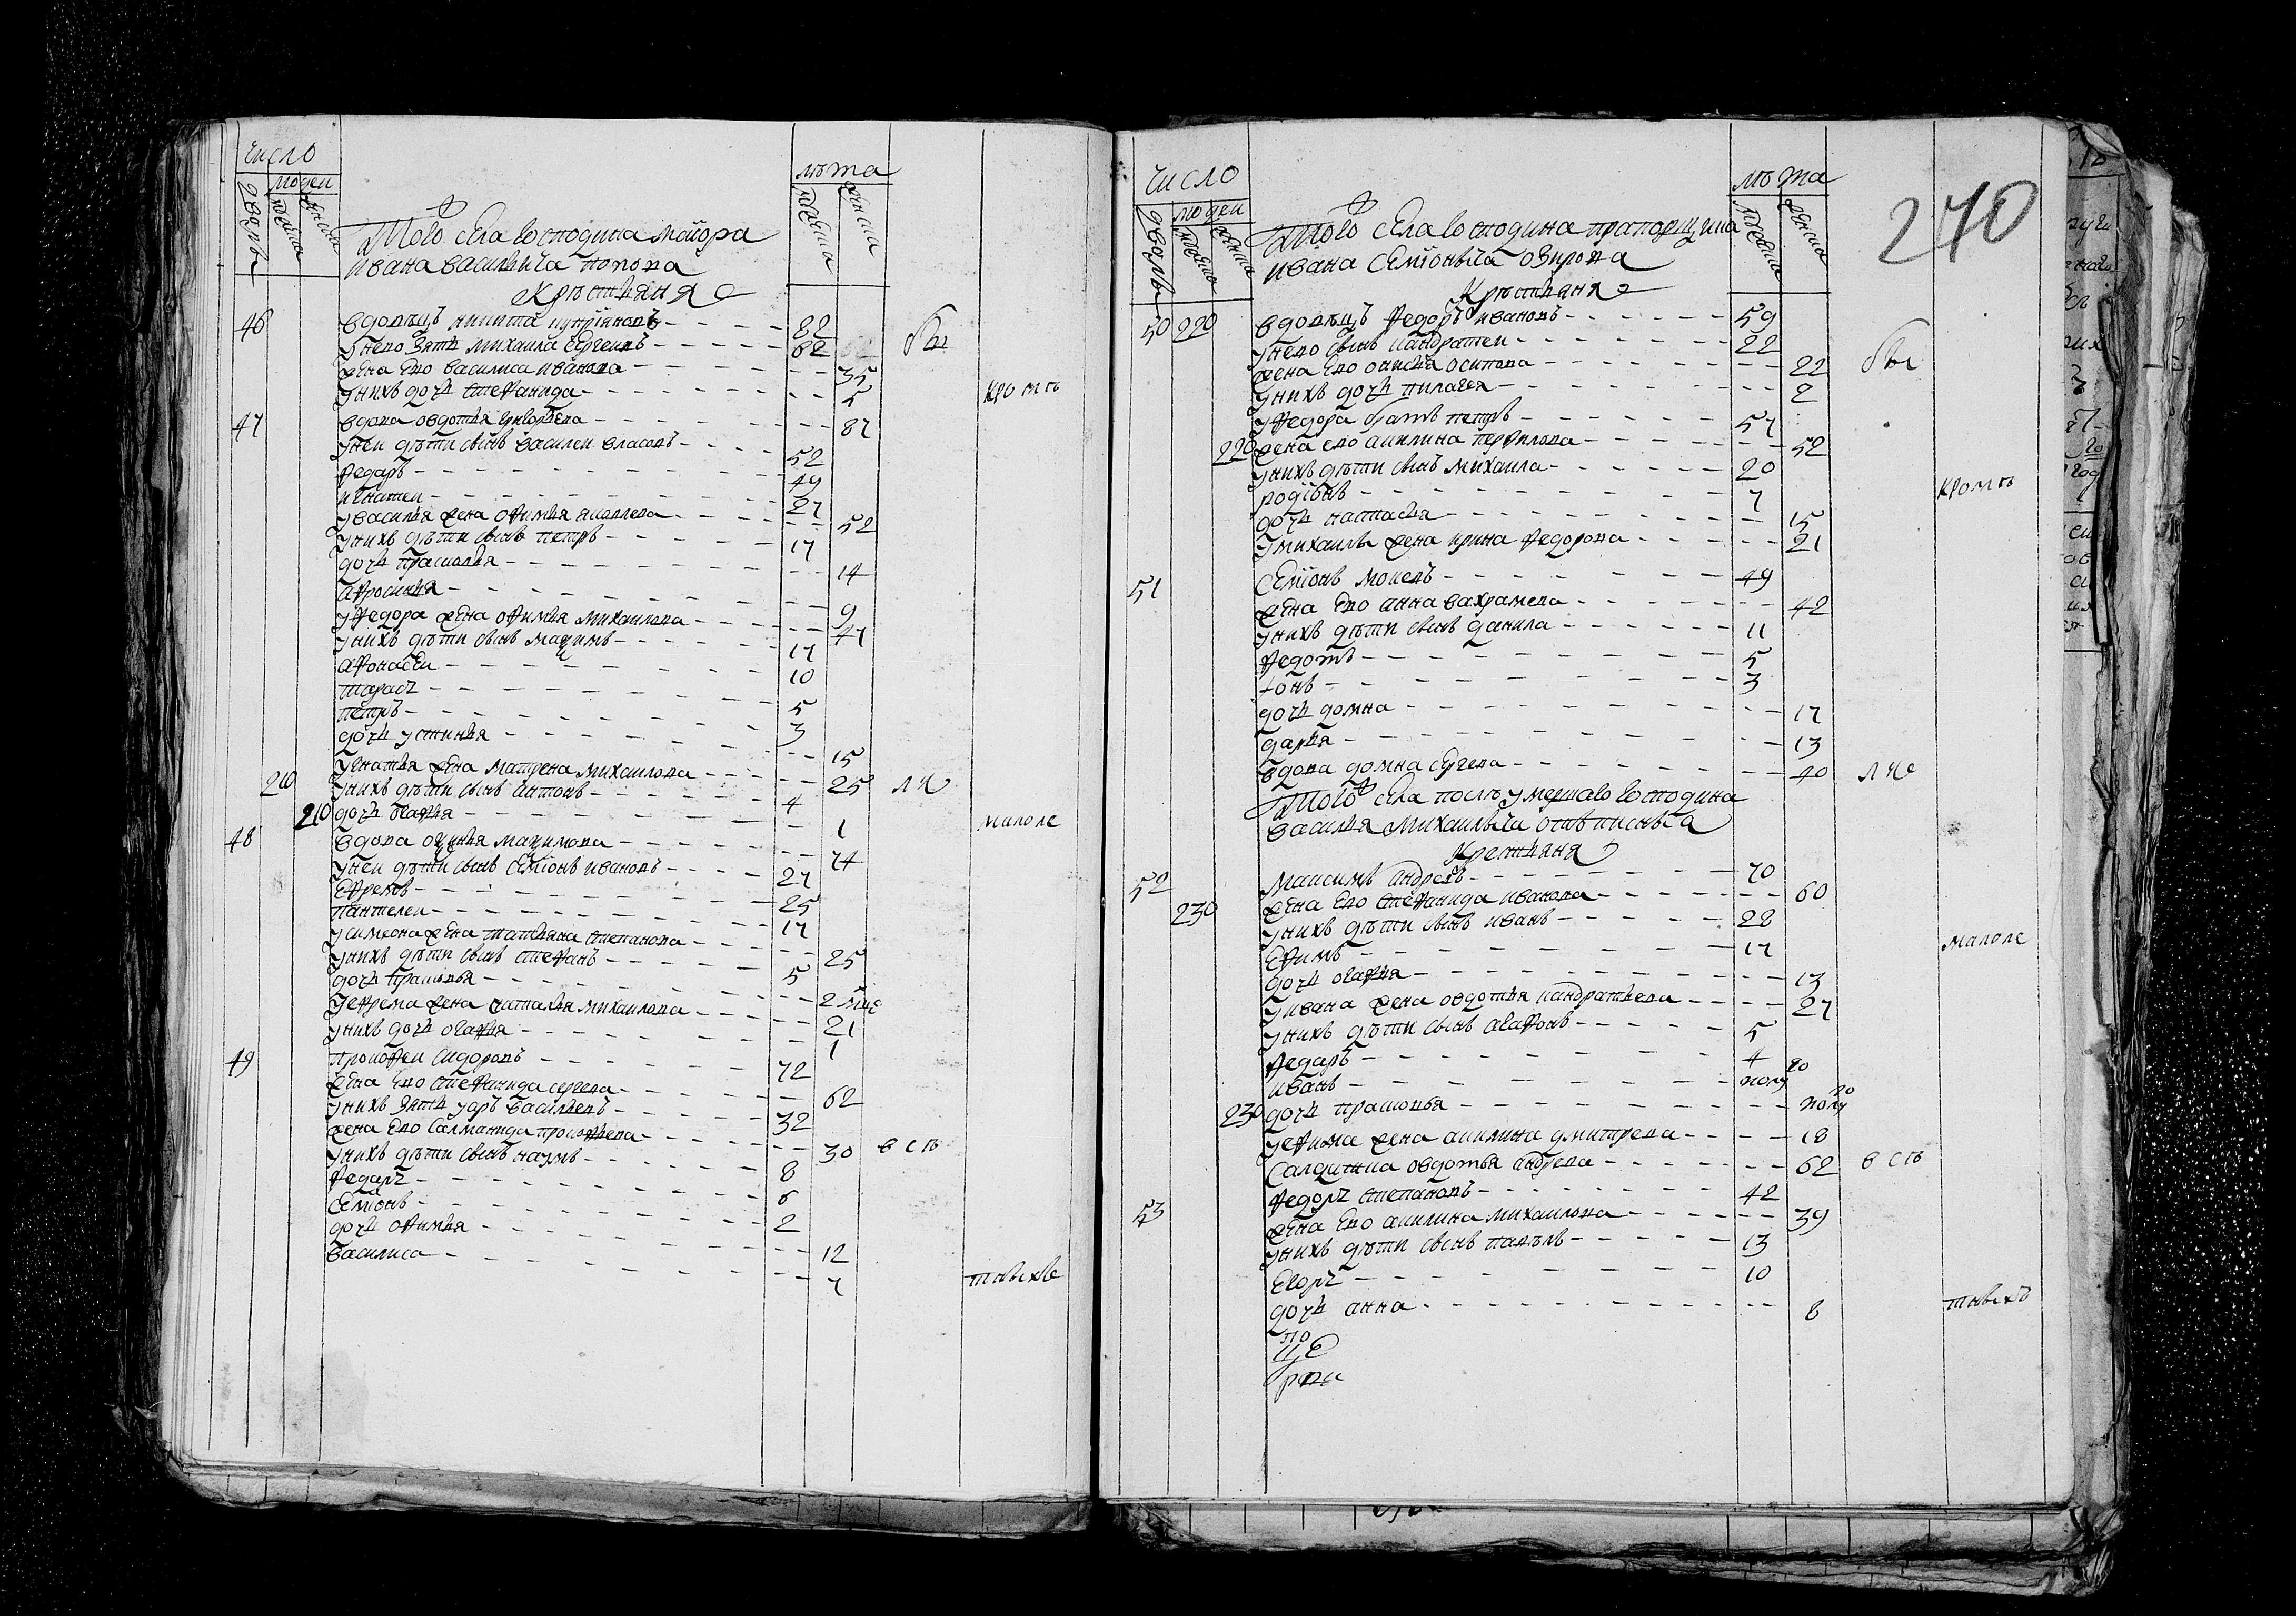 число
людеи
дворы
мужеска
женска
лѣта
мужеска
женска
Того села господина маиора
ивана васильича попова
Крѣстьяня
46 вдовѣцъ никита купріяновъ 82
унево зять михаила сергеивъ 62
жена ево василиса иванова 35 бы
унихъ дочь степанида 5 кромѣ
47 вдова овдотья григорьева 87
унеи дѣти сынъ василеи власовъ 52
федаръ 49
игнатеи 27
увасилья жена офимья яковлева 52
унихъ дѣти сынъ петръ 17
дочь прасковья 14
афросинья 9
уфедора жена офимья михаилова 47
унихъ дѣти сынъ мадимъ 17
афонасеи 10
тарасъ 5
петръ 3
дочь устинья 15
уигнатья жена матрена михаилова 25 лис
210 унихъ дѣти сынъ антонъ 4
210 дочь огафья 1 малоле
48 вдова
унеи дѣти сынъ семіонъ ивановъ 27
ефремъ 25
пантелеи 17
усимеона жена татьяна степанова 25
унихъ дѣти сынъ степанъ 5
дочь прасковья
уефрема жена наталья михаилова 21
унихъ дочь огафья 1
49 прокофеи сидоровъ 72
жена ево степанида сергева 62
унихъ зять уаръ васильевъ 32
жена ево саламанида прокофьева 30 всѣ
унихъ дѣти сынъ наумъ 8
федаръ 6
семіонъ 2
дочь офимья 12
василиса 7 тѣхъ
270
число
людеи
дворы
мужеска
женска
лѣта
мужеска
женска
Того села господина прапорщика
ивана семіоныча озирова
Крѣстьяня
50 220 вдовѣцъ федоръ ивановъ 59
унево сынъ кандратеи 22
жена ево онисья осипова 22 бы
унихъ дочь пилагея 2
уфедора братъ петръ 57
220 жена ево акилина перфилова 52
унихъ дѣти сынъ михаила 20
родіонъ 7 кромѣ
дочь настасья 15
умихаилы жена ирина федорова 21
51 семіонъ мокевъ 49
жена ево анна вахрамева 42
унихъ дѣти сынъ данила 11
федотъ 5
іонъ 3
дочь домна 17
дарья 13
вдова домна сергева 40 лис
Того села послѣ умершаго господина
василья михаилыча
Крестьяня
52 максимъ андревъ 70
230 жена ево степанида иванова 60
унихъ дѣти сынъ иванъ 28
ефимъ 17 малоле
дочь огафья 13
уивана жена овдотья кандратьева 27
унихъ дѣти сынъ агафонъ 5
федаръ 4
иванъ полуго
230 дочь прасковья полуго
уефима жена акилина дмитрева 18
салдатка овдотья андрева 62 всѣ
53 федоръ степановъ 42
жена ево акилина михаилова 39
унихъ дѣти сынъ павълъ 13
егоръ 10
дочь анна 8 тѣхъ
по
це
рква